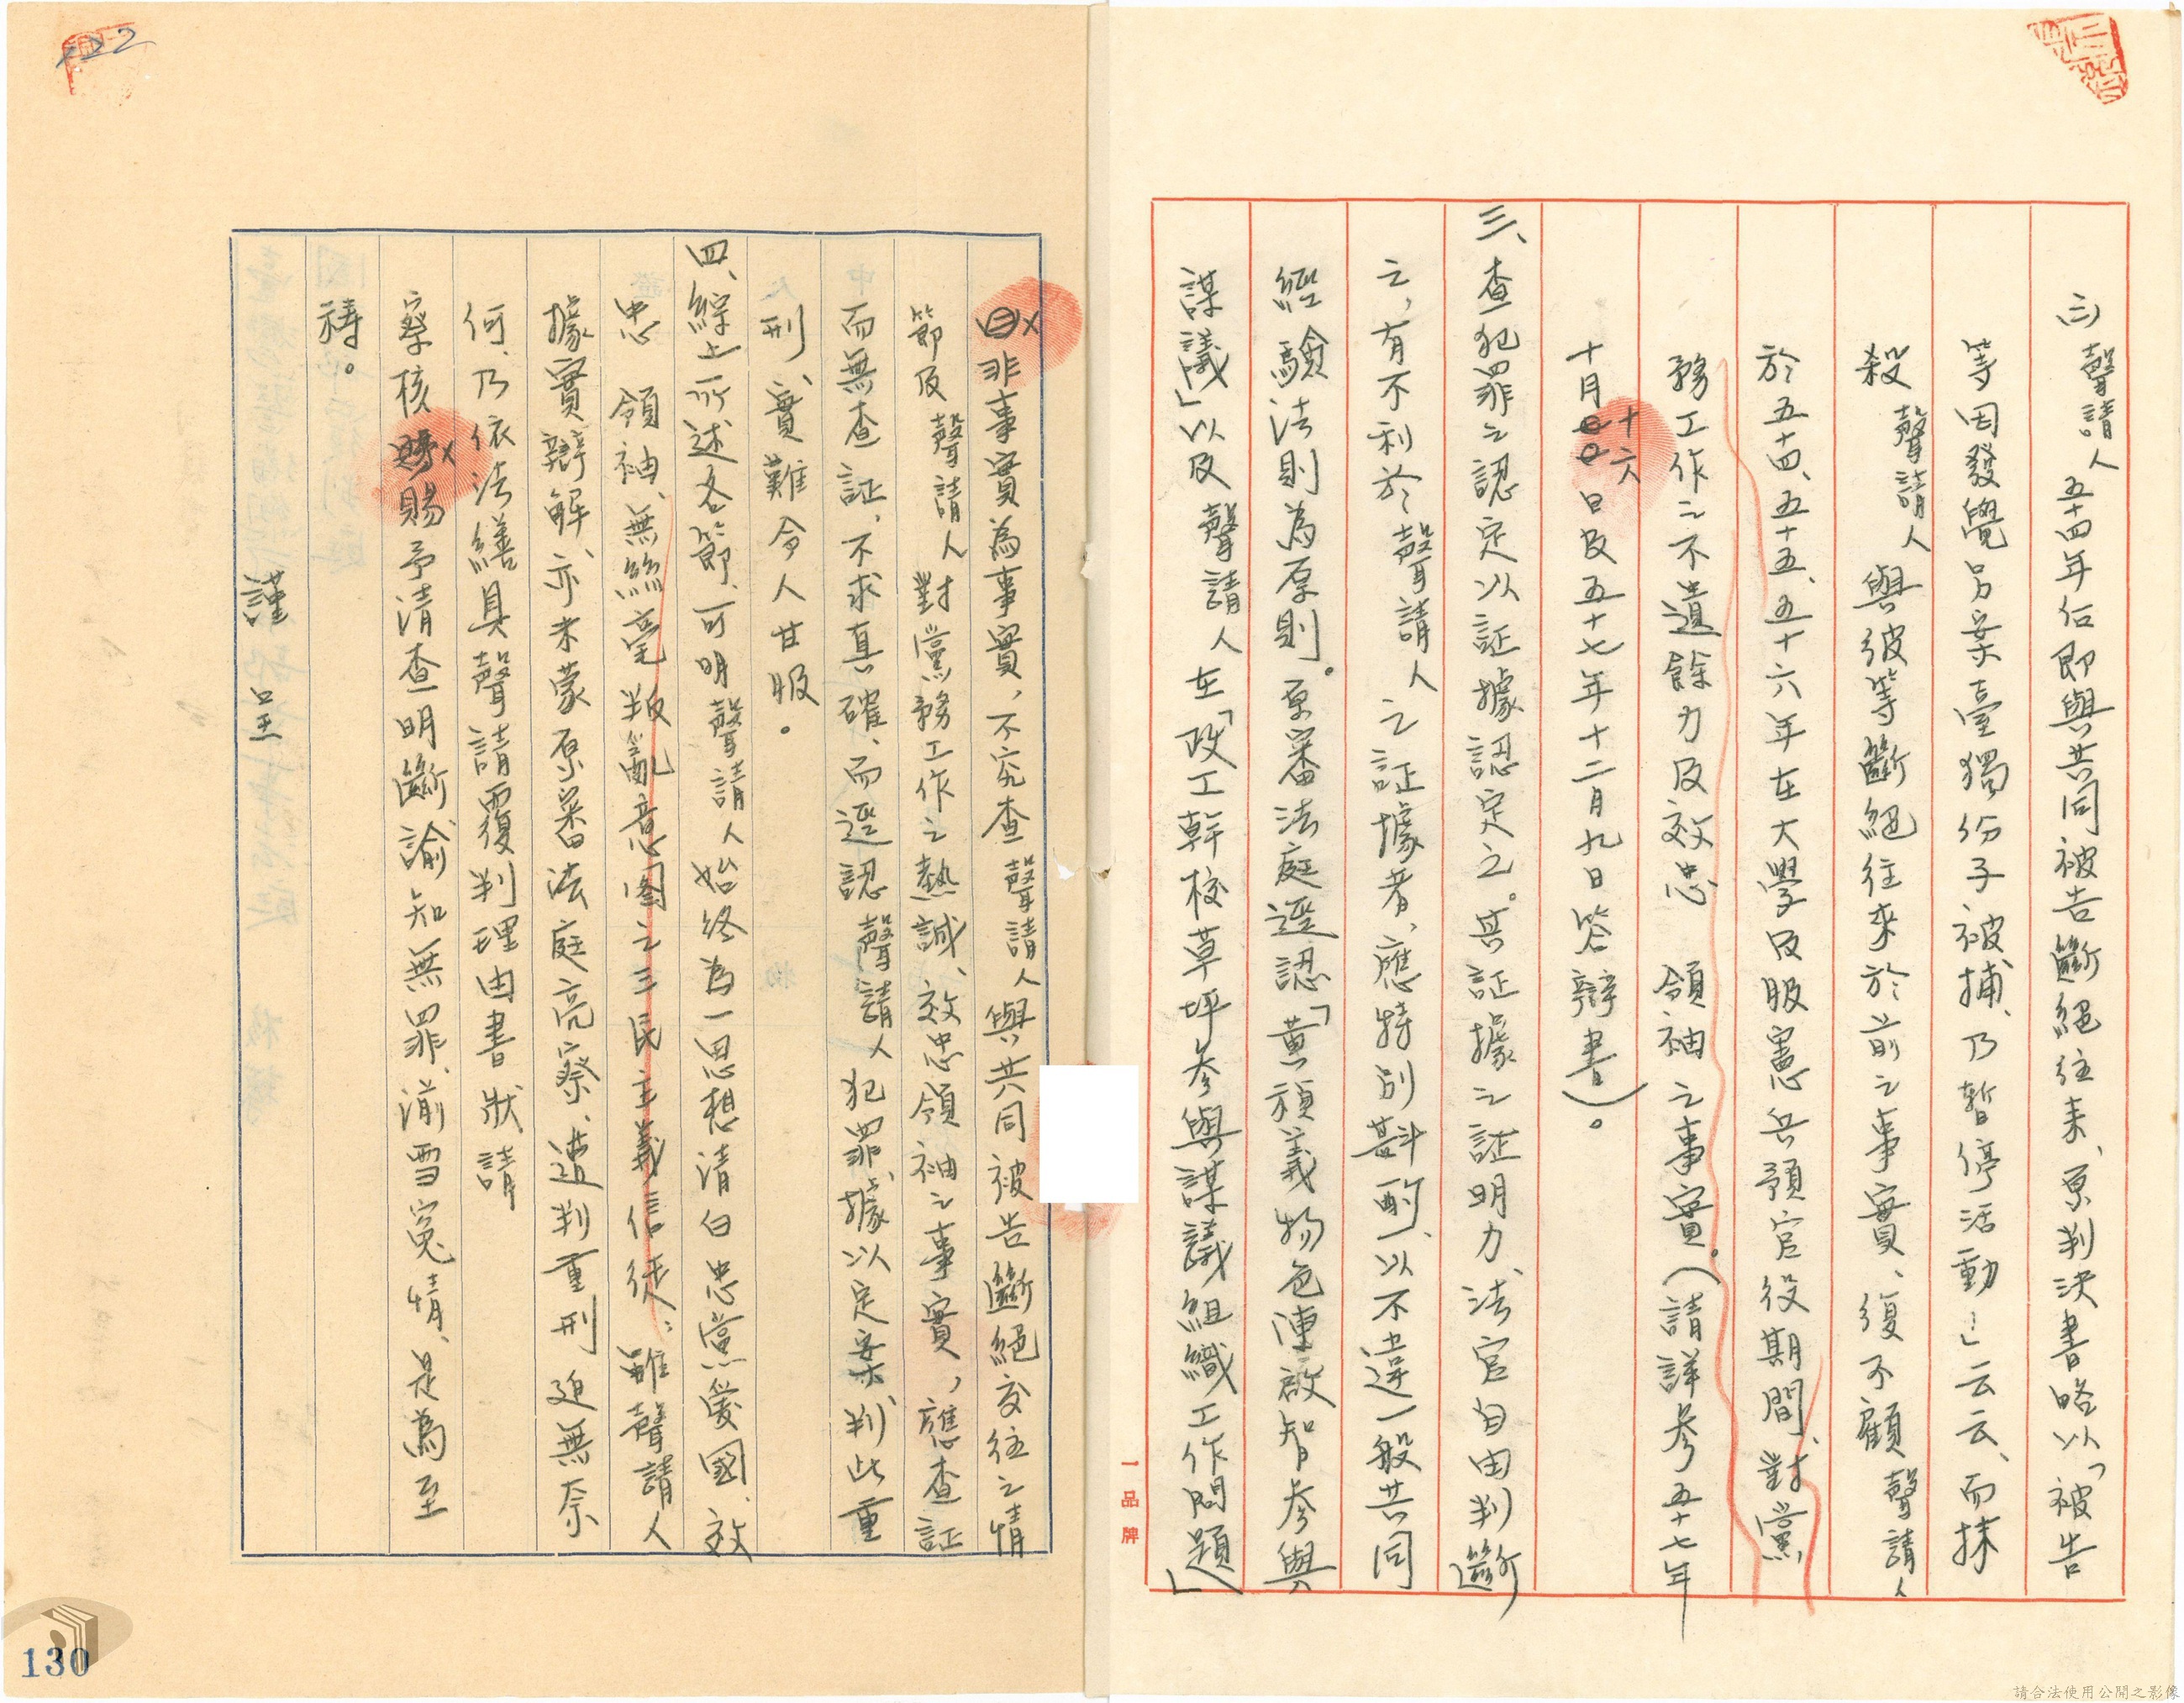 ㈢聲請人五十四年后即與共同被告斷絕往來、原判決書略以「被告
等因發覺另案臺獨份子被捕、乃暫停活動…」云云、而抹
殺聲請人與彼等斷絕往來於前之事實、復不顧聲請人
於五十四、五十五、五十六年在大學及服憲兵預官役期間、對黨
務工作之不遺餘力及效忠 領袖之事實。(請詳參五十七年
十月十六日及五十七年十二月九日答辯書)。
三、查犯罪之認定以証據認定之。其証據之証明力、法官自由判斷
之,有不利於聲請人之証據者、應特別斟酌、以不違一般共同
經驗法則為原則。原審法庭逕認「黃禎義物色陳啟智參與
謀議」以及聲請人在「政工幹校草坪參與謀議組織工作問題」
一品牌
非事實為事實,不究查聲請人與共同被告斷絕交往之情
節及聲請人對黨務工作之熱誠、效忠領袖之事實,應查証
而無查証,不求真確、而逕認聲請人犯罪、據以定案、判此重
刑、實難令人甘服。
四、綜上所述各節、可明聲請人始終為一思想清白忠黨愛國、效
忠 領袖、無絲毫叛亂意圖之三民主義信徒、雖聲請人
據實辯解、亦未蒙原審法庭亮察、遭判重刑迫無奈
何、乃依法繕具聲請覆判理由書狀請
察核賜予清查明斷諭知無罪、湔雪冤情、是為至
禱。
謹 呈
122
130
請合法使用公開之影像